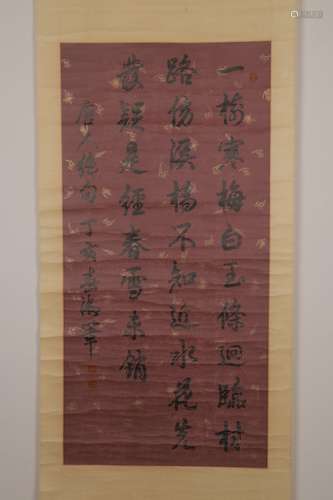 一樹寒梅白玉條迥臨村
路傍溪橋不知近水花先
發疑是經春雪未銷
唐人絕句丁亥春